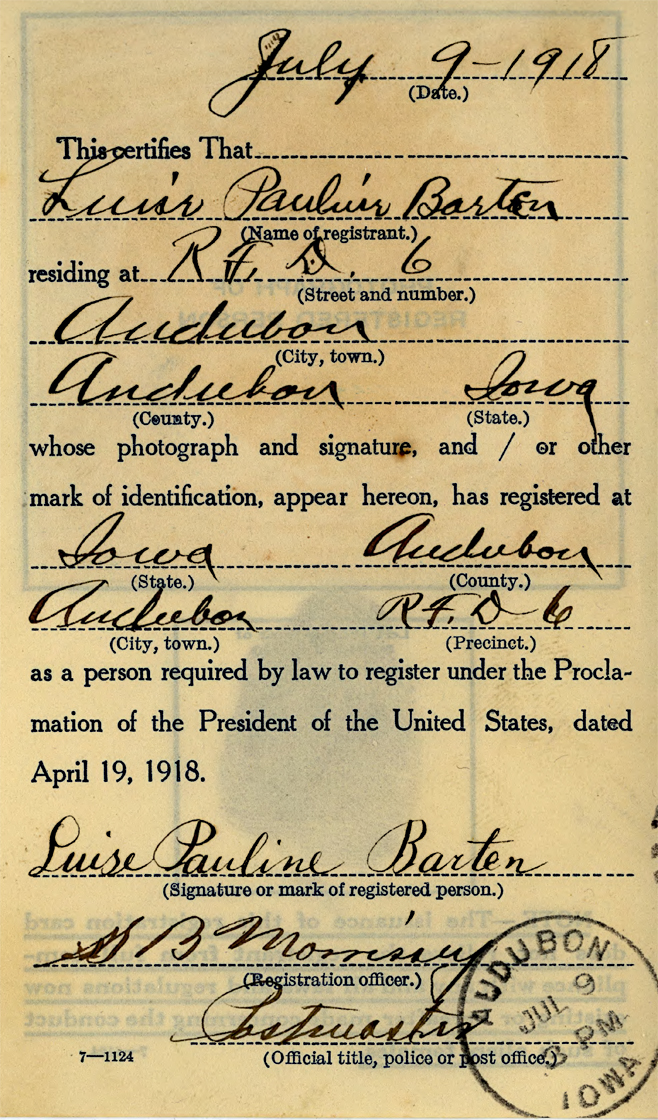 July 9-1918
(Date.)
This certifies That
Luise Pauline Barten
(Name of registrant.)
residing at R. F. D. 6
(Street and number.)
Audubon
(City, town.)
Audubon Iowa
(County.) (State.)
whose photograph and signature, and / or other
mark of identification, appear hereon, has registered at
Iowa Audubon
(State.) (County.)
Audubon R. F. D 6
(City, town.) (Precinct.)
as a person required by law to register under the Procla-
mation of the President of the United States, dated
April 19, 1918.
Luise Pauline Barten
(Signature or mark of registered person.)
B Morrissey
(Registration officer.)
Postmaster
(Official title, police or post office.)
7—1124
AUDUBON
JUL 9
3 PM
IOWA